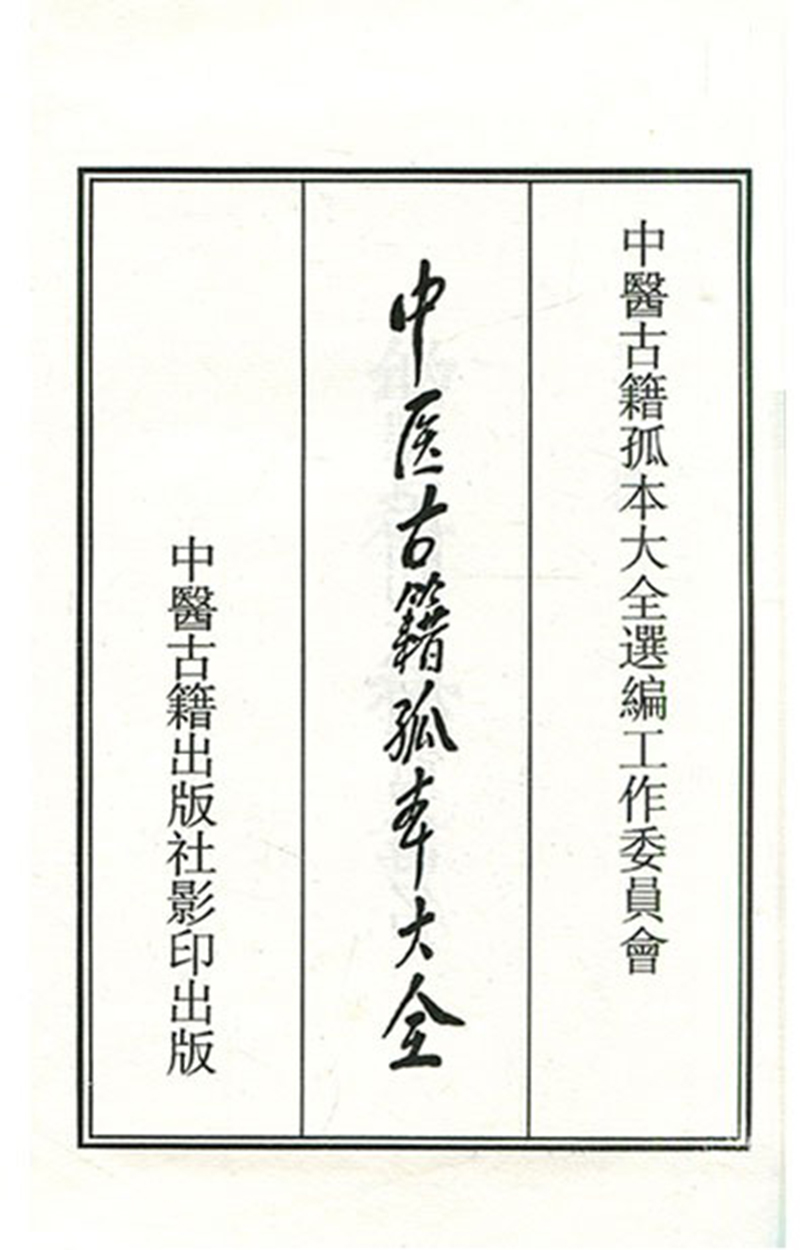 中醫古籍孤本大全選編工作委員會
中医古籍孤本大全
中醫古籍出版社影印出版